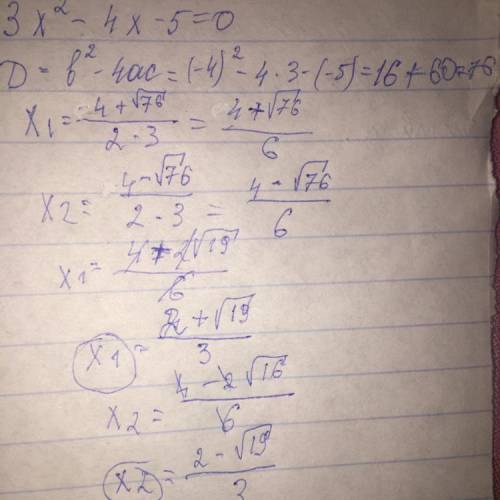 3x² - 4x - 5 = 0
D = b² - 4ac = (-4)² - 4 · 3 · (-5) = 16 + 60 = 76
x₁ = (4 + √76)/(2 · 3) = (4 + √76)/6
x₂ = (4 - √76)/(2 · 3) = (4 - √76)/6
x₁ = (4 + 2√19)/6
x₁ = (2 + √19)/3
x₂ = (4 - 2√16)/6
x₂ = (2 - √19)/3